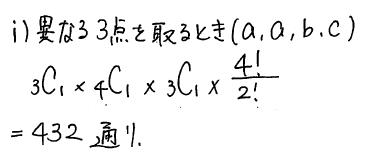 i) 異なる3点を取るとき(a, a, b, c)
₃C₁ × ₄C₁ × ₃C₁ × 4!/2!
= 432 通り.